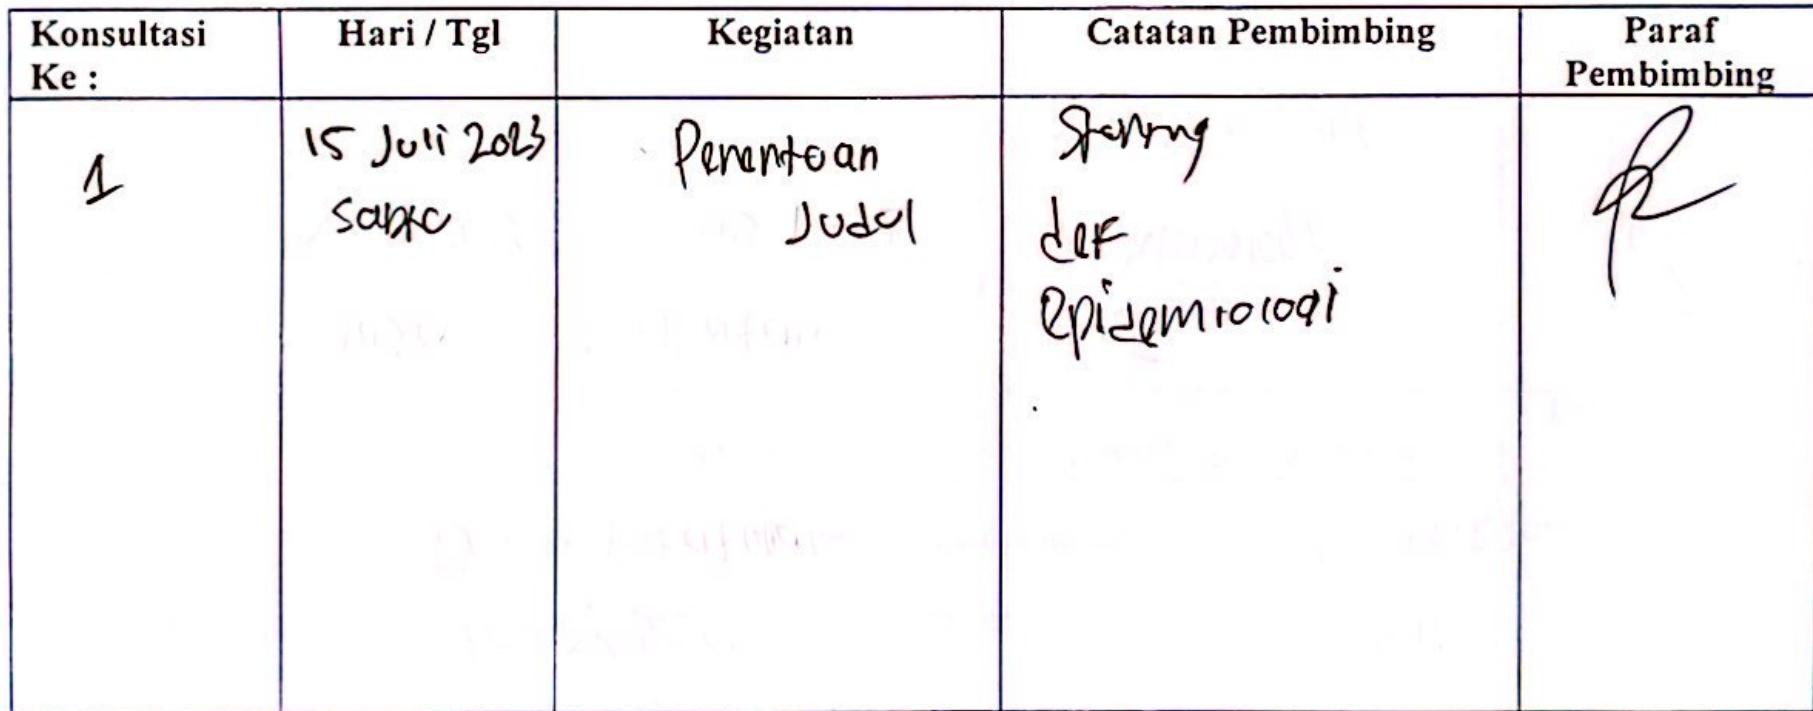 Konsultasi Ke :
Hari / Tgl
Kegiatan
Catatan Pembimbing
Paraf Pembimbing
1
15 Juli 2023
Sabtu
Penentuan
Judul
def
epidemiologi